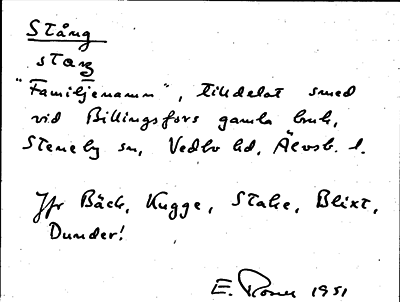 Stång
stang
"Familjenamn", tilldelat smed
vid Billingsfors gamla bruk,
Steneby sn, Vedbo hd, Älvsb. l.
Jfr Bäck, Kugge, Stake, Blixt,
Dunder!
E. 1951